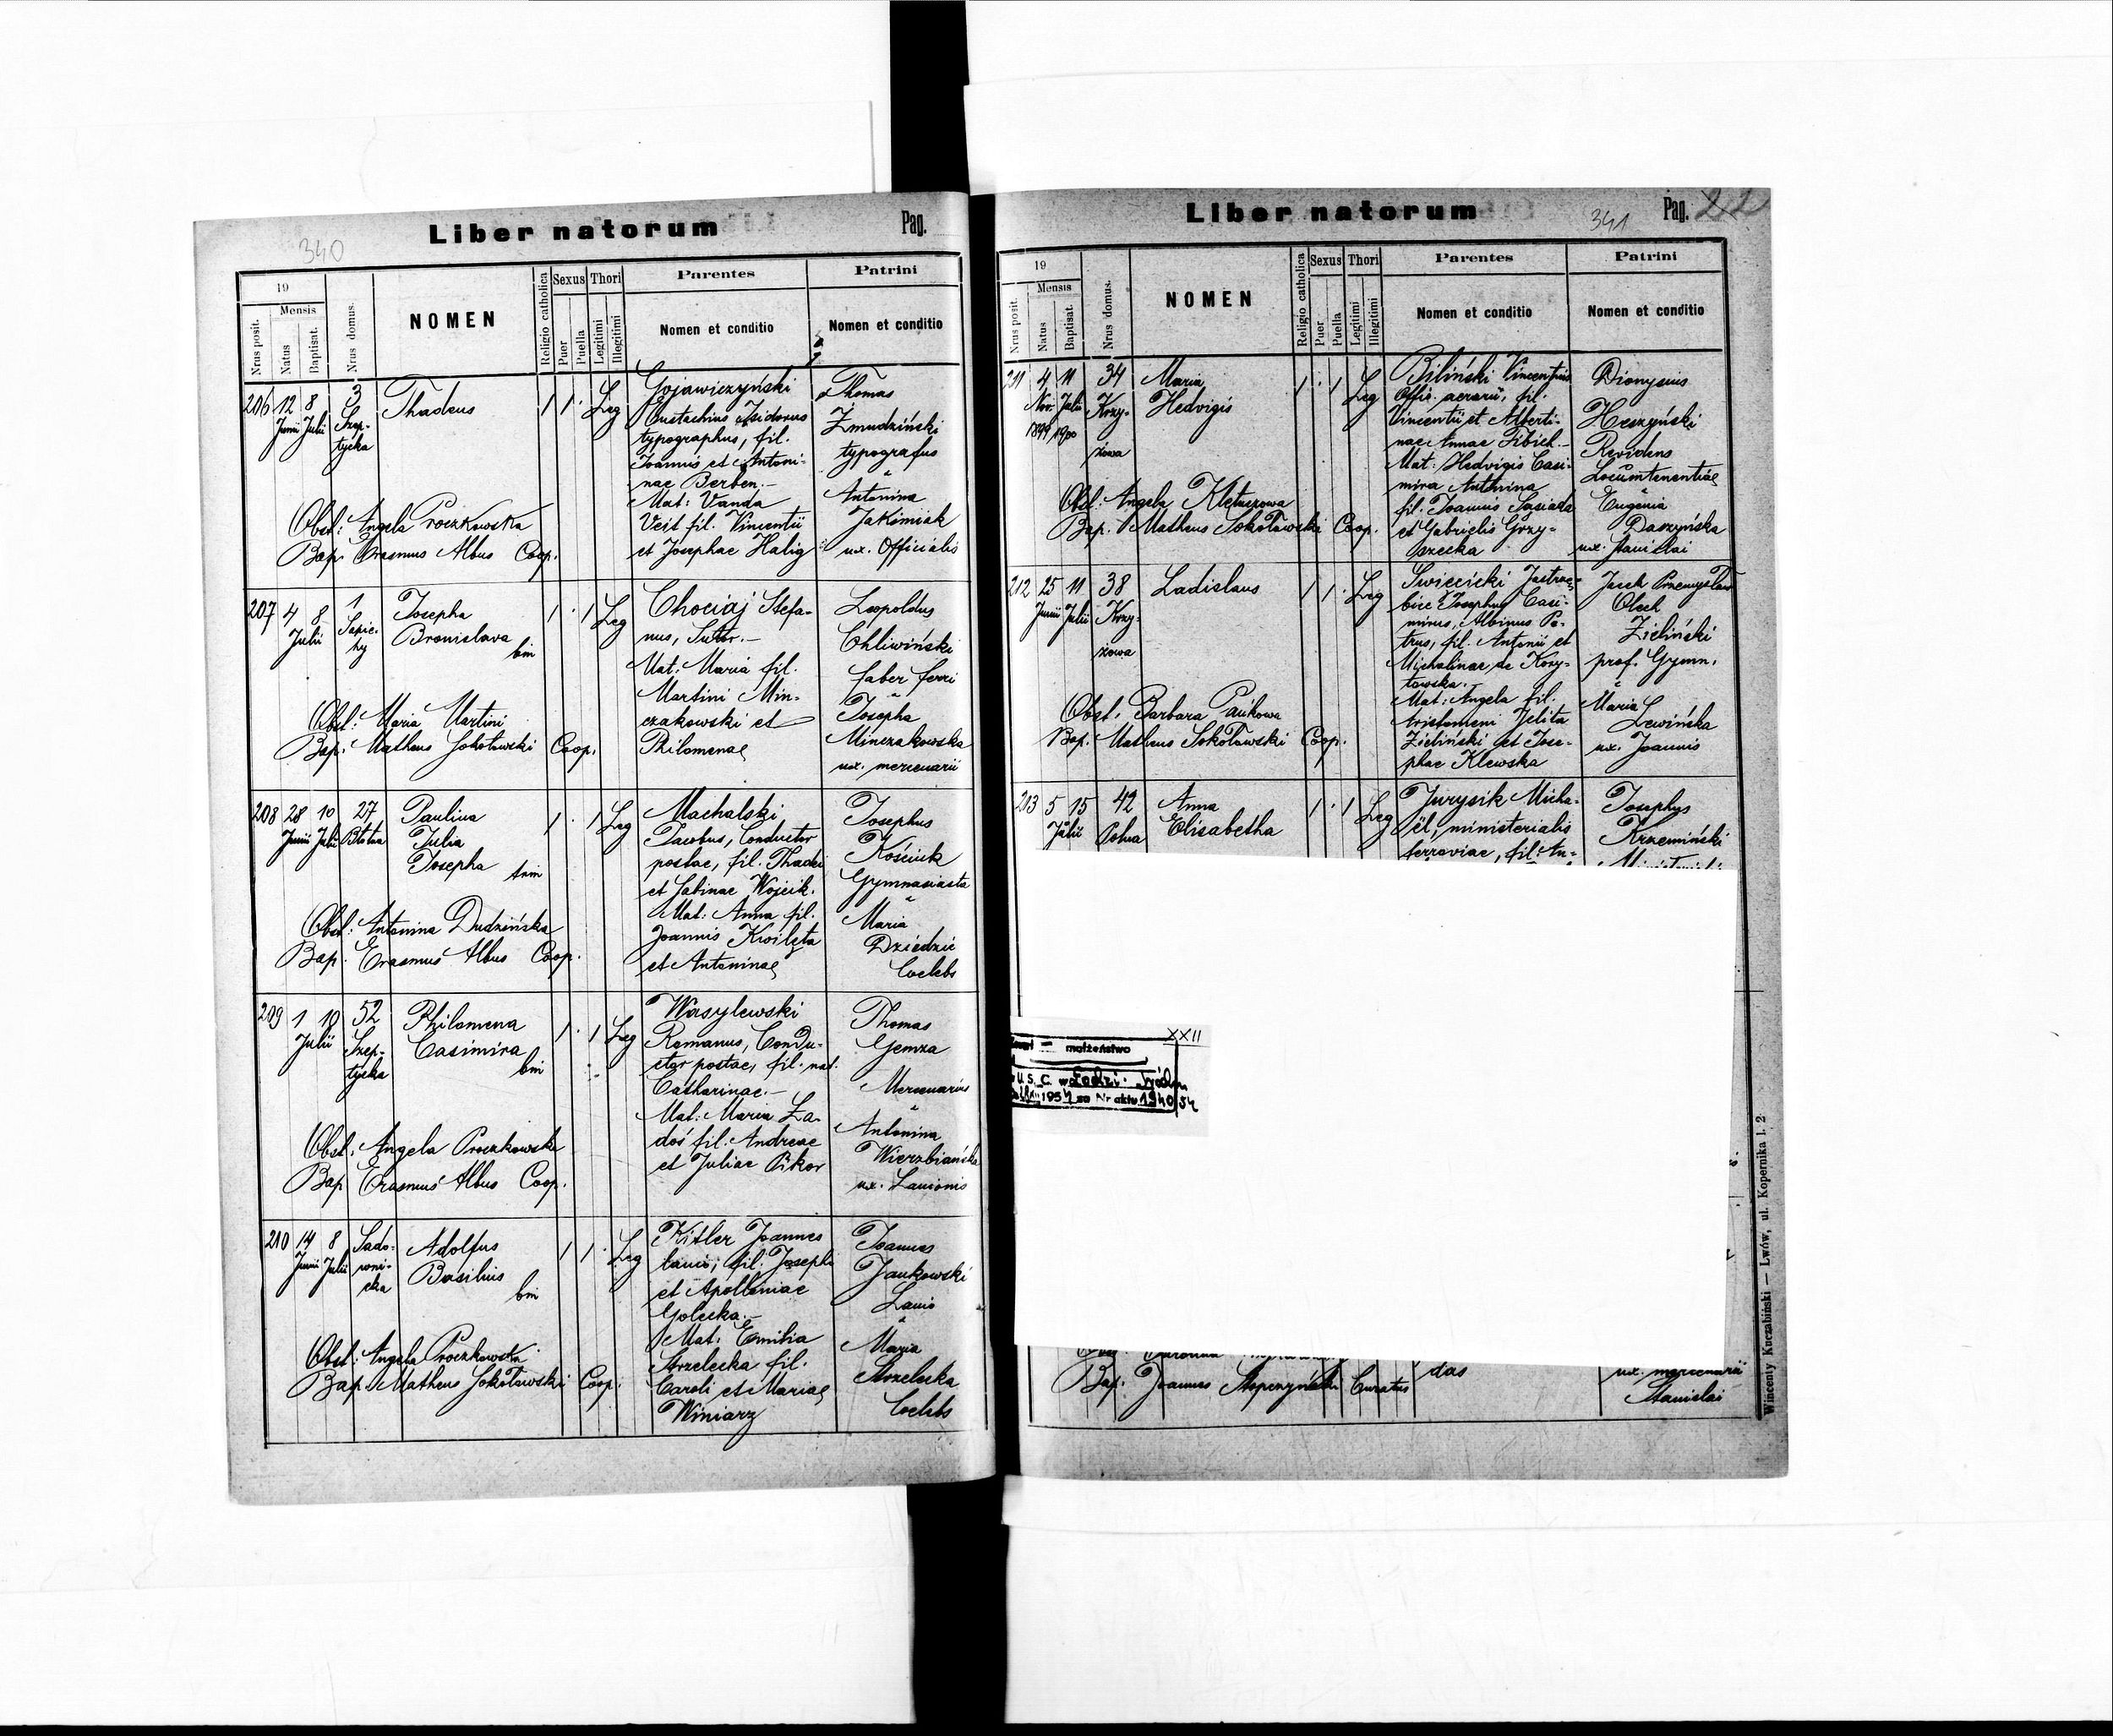 Liber natorum
Pag.
340
19
Mensis
Nrus posit.
Natus
Baptisat.
Nrus domus.
NOMEN
Religio catholica
Sexus
Puer
Puella
Thori
Legitimi
Illegitimi
Parentes
Nomen et conditio
Patrini
Nomen et conditio
206 12 8 3 Thadeus 1 1 Leg
Junii Julii Szep-
tycka
Gojawiczyński
Eustachius Isidorus
typographus, fil.
Joannis et Antoni-
nae Berben.-
Mat: Vanda
Veit fil. Vincentii
et Josephae Halig
Thomas
Żmudziński
typografus
Antonina
Jakimiak
ux. Officialis
Obst: Angela Proczkowska
Bap. Erasmus Albus Coop.
207 4 8 1 Josepha 1 1 Leg
Julii Sapie-
hy
Bronislava
bin
Chociaj Stefa-
nus, Sutor.-
Mat: Maria fil.
Martini Min-
czakowski et
Philomenae
Leopoldus
Chliwiński
faber ferri
Josepha
Minczakowska
ux. mercenarii
Obst: Maria Martini
Bap: Matheus Sokołowski Coop.
208 28 10 27 Paulina 1 1 Leg
Junii Julii Błotna Julia
Josepha trin
Machalski
Jacobus, Conductor
postae, fil. Thadei
et Sabinae Wojcik.
Mat: Anna fil.
Joannis Kwilęta
et Antoninae
Josephus
Kościuk
Gymnasiasta
Maria
Dziedzic
Coelebs
Obst: Antonina Dudzińska
Bap. Erasmus Albus Coop.
209 1 10 52 Philomena 1 1 Leg
Julii Szep-
tycka
Casimira
bin
Wasylewski
Romanus, Condu-
ctor postae, fil. nat.
Catharinae.-
Mat: Maria Ła-
doś fil. Andreae
et Juliae Pikor
Thomas
Gemza
Mercenarius
Antonina
Wierzbiańska
ux. Lanionis
Obst. Angela Proczkowska
Bap Erasmus Albus Coop.
210 14 8 Sado- Adolfus 1 1 Leg
Junii Julii wni-
cka
Basilius
bin
Kitler Joannes
lanio, fil. Josephi
et Apolloniae
Golecka.-
Mat: Emilia
Strzelecka fil.
Caroli et Mariae
Winiarz
Joannes
Jankowski
Lanio
Maria
Strzelecka
Coelebs
Obst: Angela Proczkowska
Bap. Matheus Sokołowski Coop.
Liber natorum
341
Pag. 22
19
Mensis
Nrus posit.
Natus
Baptisat.
Nrus domus.
NOMEN
Religio catholica
Sexus
Puer
Puella
Thori
Legitimi
Illegitimi
Parentes
Nomen et conditio
Patrini
Nomen et conditio
211 4 11 34 Maria 1 1 Leg
Nov. Julii Krzy-
1899 1900 żowa
Hedvigis
Biliński Vincentius
Offic. aerarii, fil.
Vincentii et Alberti-
nae Annae Fibich.-
Mat: Hedvigis Casi-
mira Antonina
fil. Joannis Sasiada
et Gabrielis Grzy-
szecka
Dionysius
Heszyński
Revidens
Locumtenentiae
Eugenia
Daszyńska
ux. Stanislai
Obst: Angela Kletuszowa
Bap. Matheus Sokołowski Coop.
212 25 11 38 Ladislaus 1 1 Leg
Junii Julii Krzy-
żowa
Swiecicki Jastrzę-
biec Josephus Casi-
mirus, Albinus Pe-
trus, fil. Antonii et
Michalinae de Kory-
towska.
Mat: Angela fil.
Aristomeni Jelita
Zieliński et Jose-
phae Klewska
Olech
Zieliński
prof. Gymn.
Maria
Lewińska
ux. Joannis
Obst. Barbara Paukowa
Bap. Matheus Sokołowski Coop.
213 5 15 42 Anna 1 1 Leg
Julii Polna Elisabetha
Jurysik Micha-
ël, ministerialis
ferroviae, fil. An-
Josephus
Krzemiński
XXII
małżeństwo
U.S.C. w Łodzi
1954 za Nr aktu 1940/54
das
ux. mercenarii
Stanislai
Bap. Joannes Stopczyński Curatus
Wincenty Kuczabiński — Lwów, ul. Kopernika l. 2